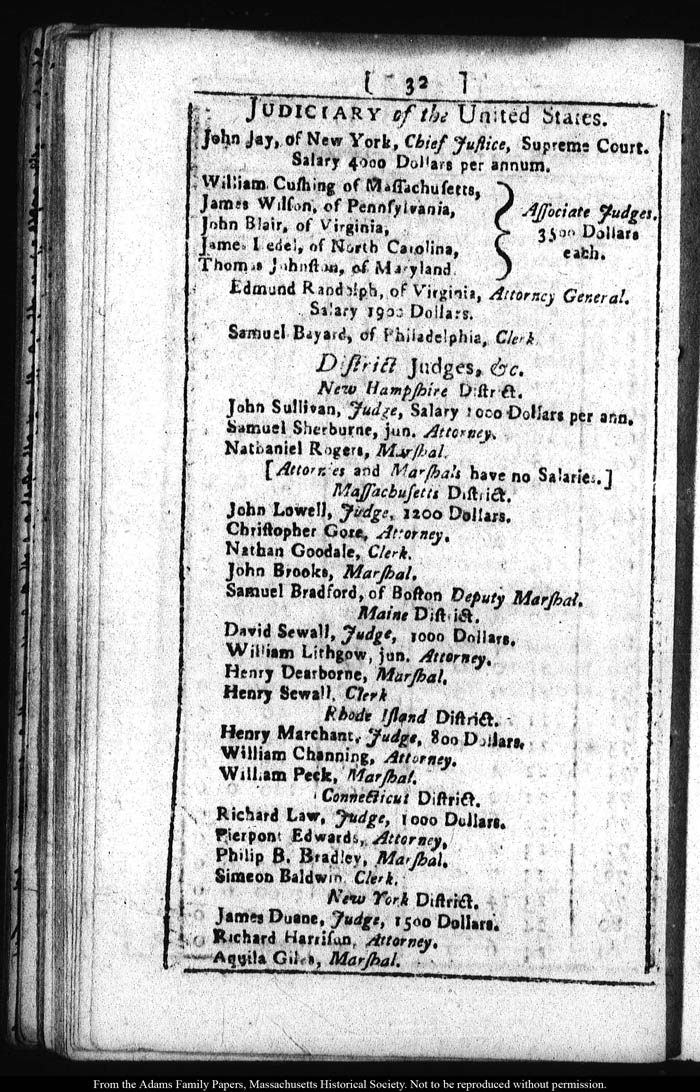 [ 32 ]
JUDICIARY of the United States.
John Jay, of New York, Chief Juſtice, Supreme Court.
Salary 4000 Dollars per annum.
William Cuſhing of Maſſachuſetts,
James Wilſon, of Pennſylvania,
John Blair, of Virginia,
James Iedel, of North Carolina,
Thomas Johnſton, of Maryland.
Aſſociate Judges.
3500 Dollars
each.
Edmund Randolph, of Virginia, Attorney General.
Salary 1900 Dollars.
Samuel Bayard, of Philadelphia, Clerk.
Diſtrict Judges, &c.
New Hampſhire Diſtrict.
John Sullivan, Judge, Salary 1000 Dollars per ann.
Samuel Sherburne, jun. Attorney.
Nathaniel Rogers, Marſhal.
[Attornies and Marſhals have no Salaries.]
Maſſachuſetts Diſtrict.
John Lowell, Judge, 1200 Dollars.
Chriſtopher Gore, Attorney.
Nathan Goodale, Clerk.
John Brooks, Marſhal.
Samuel Bradford, of Boſton Deputy Marſhal.
Maine Diſtrict.
David Sewall, Judge, 1000 Dollars.
William Lithgow, jun. Attorney.
Henry Dearborne, Marſhal.
Henry Sewall, Clerk
Rhode Iſland Diſtrict.
Henry Marchant, Judge, 800 Dollars.
William Channing, Attorney.
William Peck, Marſhal.
Connecticut Diſtrict.
Richard Law, Judge, 1000 Dollars.
Pierpont Edwards, Attorney,
Philip B. Bradley, Marſhal.
Simeon Baldwin, Clerk.
New York Diſtrict.
James Duane, Judge, 1500 Dollars.
Richard Harriſon, Attorney.
Aquila Giles, Marſhal.
From the Adams Family Papers, Massachusetts Historical Society. Not to be reproduced without permission.